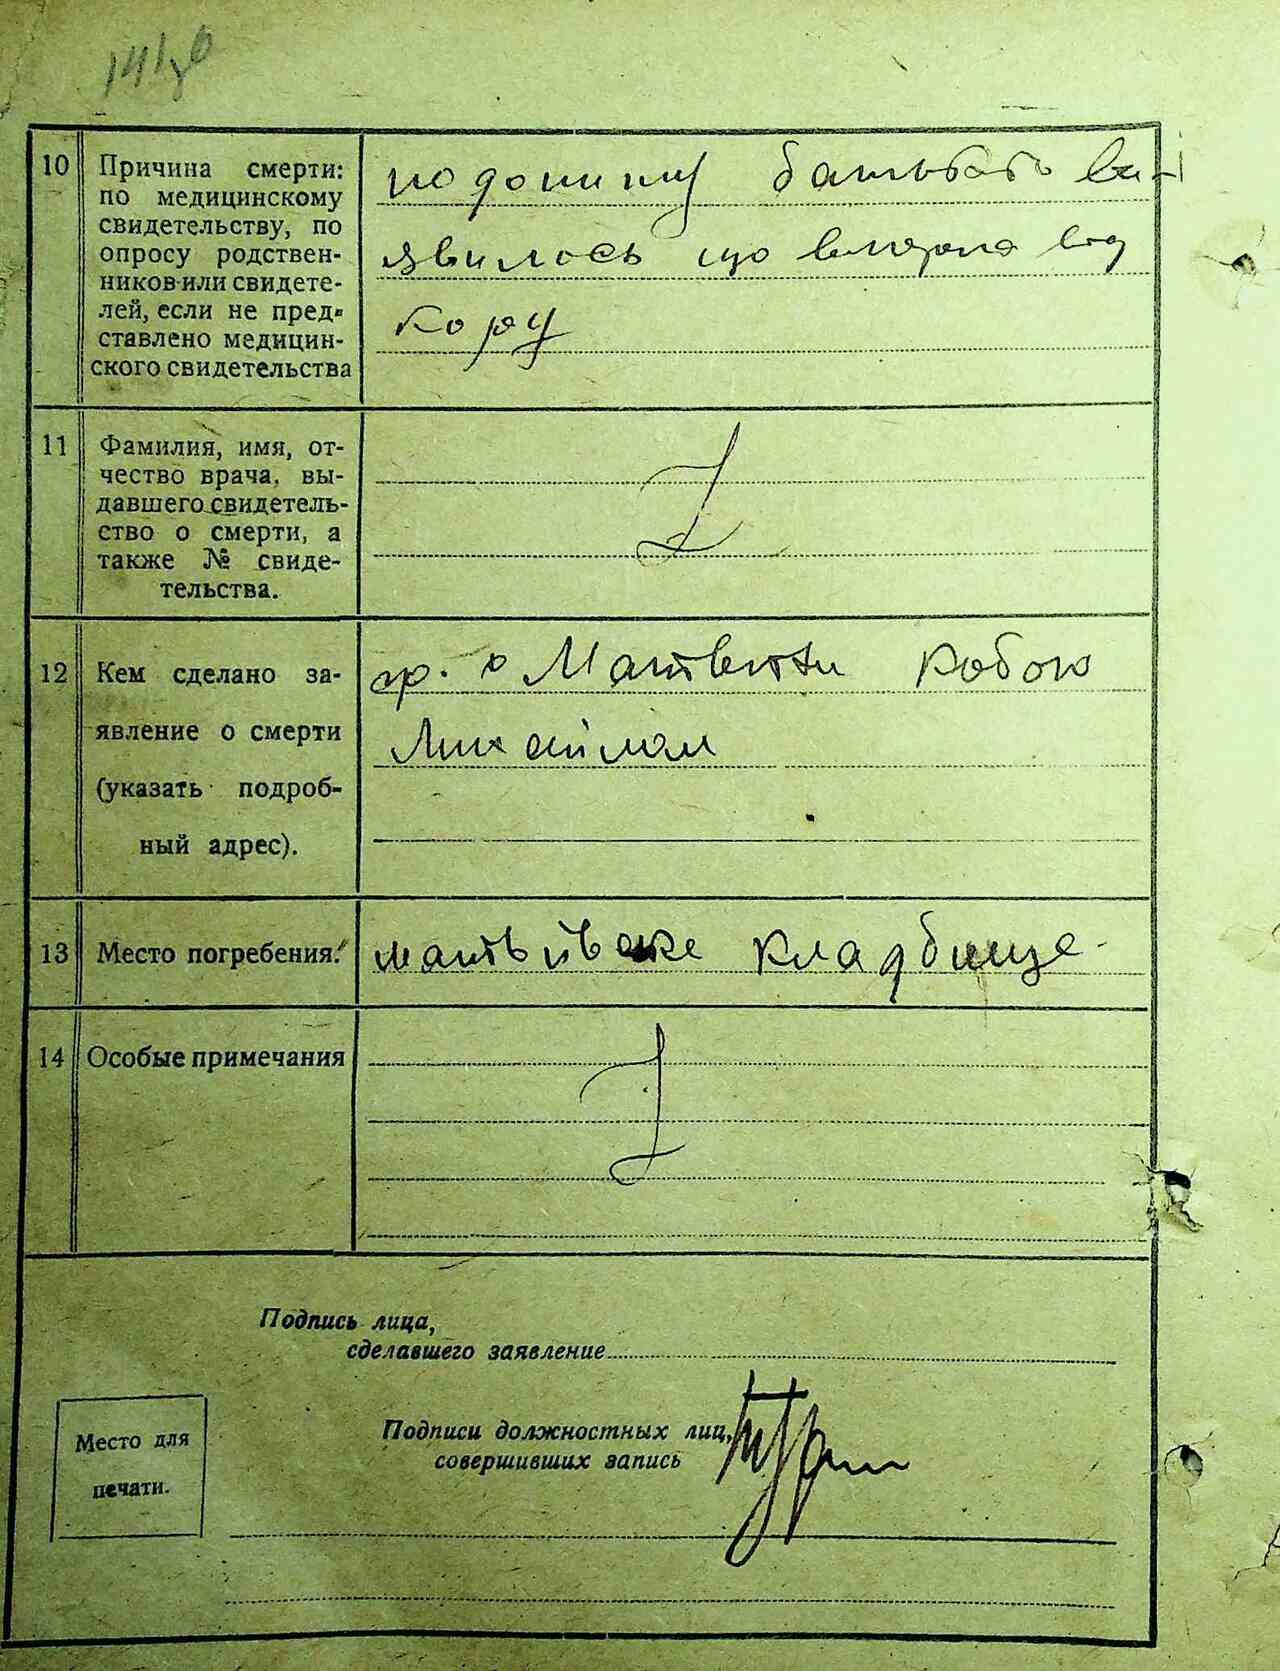 10
Причина смерти:
по медицинскому
свидетельству, по
опросу родствен-
ников или свидете-
лей, если не пред-
ставлено медицин-
ского свидетельства
по допиту батьків ви-
явилось що вмерла від
кору
11
Фамилия, имя, от-
чество врача, вы-
давшего свидетель-
ство о смерти, а
также № свиде-
тельства.
12
Кем сделано за-
явление о смерти
(указать подроб-
ный адрес).
гр. х Матвеевки
Михайлом
13
Место погребения.
матвѣевске кладбище
14
Особые примечания
Подпись лица,
сделавшего заявление
Место для
печати.
Подписи должностных лиц,
совершивших запись